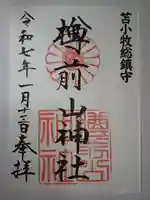 苫小牧総鎮守
樽前山神社
令和七年一月十二日奉拝